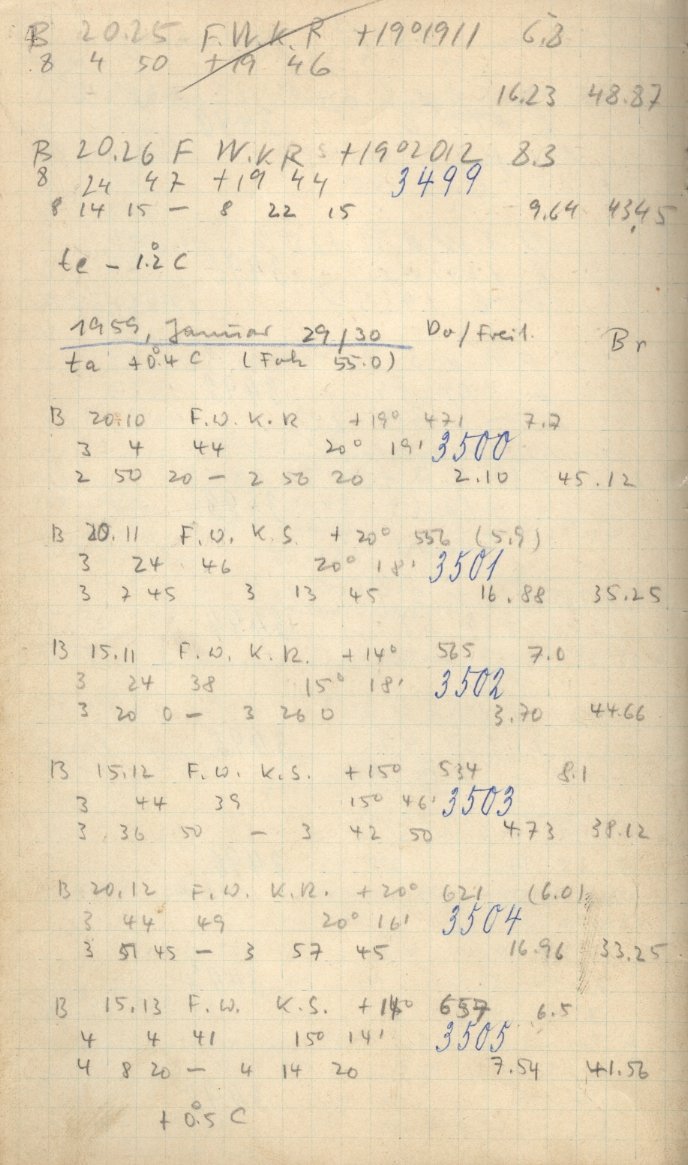 B 20.25 F.W.K.R +19°1911 6.8
8 4 50 +19 46
16.23 48.87
B 20.26 F W.K.R +19°2012 8.3
8 24 47 +19 44 3499
8 14 15 – 8 22 15 9.64 43.45
te – 1.2° C
1959, Januar 29/30 Do/Freit. Br
ta +0.4° C (Fok 55.0)
B 20.10 F.W.K.R +19° 471 7.7
3 4 44 20° 19' 3500
2 50 20 – 2 56 20 2.10 45.12
B 20.11 F.W.K.S. +20° 556 (5.9)
3 24 46 20° 18' 3501
3 7 45 3 13 45 16.88 35.25
B 15.11 F.W.K.R. +14° 565 7.0
3 24 38 15° 18' 3502
3 20 0 – 3 26 0 3.70 44.66
B 15.12 F.W.K.S. +15° 534 8.1
3 44 39 15° 46' 3503
3 36 50 – 3 42 50 4.73 38.12
B 20.12 F.W.K.R. +20° 621 (6.0)
3 44 49 20° 16' 3504
3 51 45 – 3 57 45 16.96 33.25
B 15.13 F.W. K.S. +14° 657 6.5
4 4 41 15° 14' 3505
4 8 20 – 4 14 20 7.54 41.56
+0.5° C